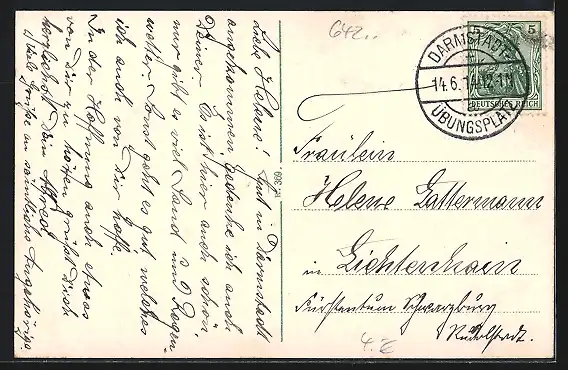 Liebe Helene! Gut in Darmstadt
angekommen, gedenke ich auch
Deiner. Es ist hier auch schön,
nur gibt es viel Sand und Regen-
wetter. Sonst geht es gut, welches
ich auch von Dir hoffe.
In der Hoffnung auch etwas
von Dir zu hören grüßt Dich
herzlichst Dein Alfred.
Viele Grüße an sämtliche Angehörige.
642.
DARMSTADT
14.6.14. 12-1N
ÜBUNGSPLATZ
5
DEUTSCHES REICH
Fräulein
Helene Lattermann
in Lichtenhain
Fürstentum Schwarzburg
Rudolstadt.
369